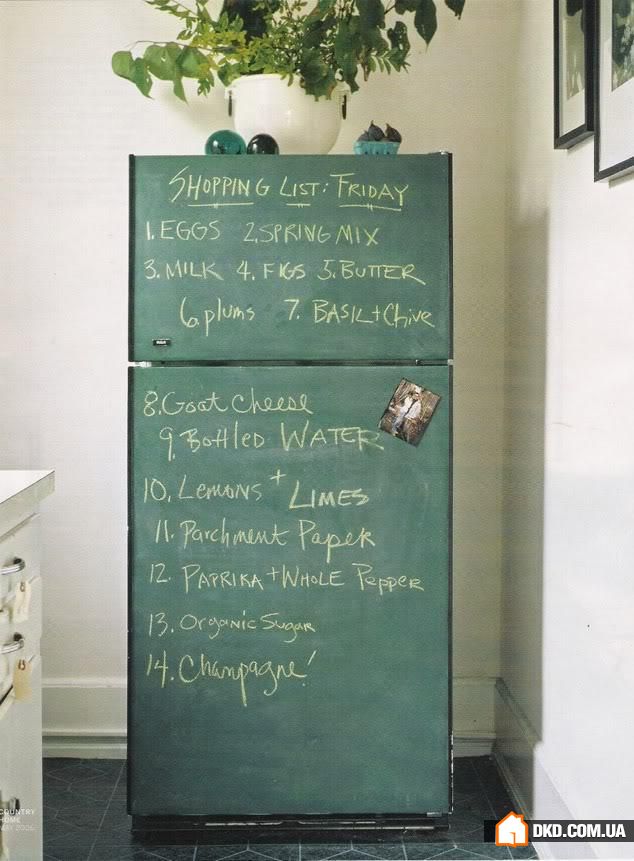 SHOPPING LIST: FRIDAY
1. EGGS 2. SPRING MIX
3. MILK 4. FIGS 5. BUTTER
6. plums 7. BASIL + Chive
8. Goat Cheese
9. Bottled WATER
10. Lemons + LIMES
11. Parchment Paper
12. PAPRIKA + WHOLE Pepper
13. Organic Sugar
14. Champagne!
COUNTRY
HOME
2006
DKD.COM.UA